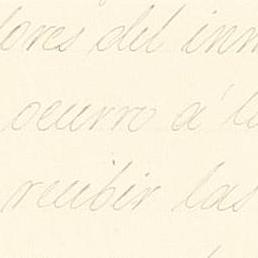 lores del inm
ocurro á la
recibir las